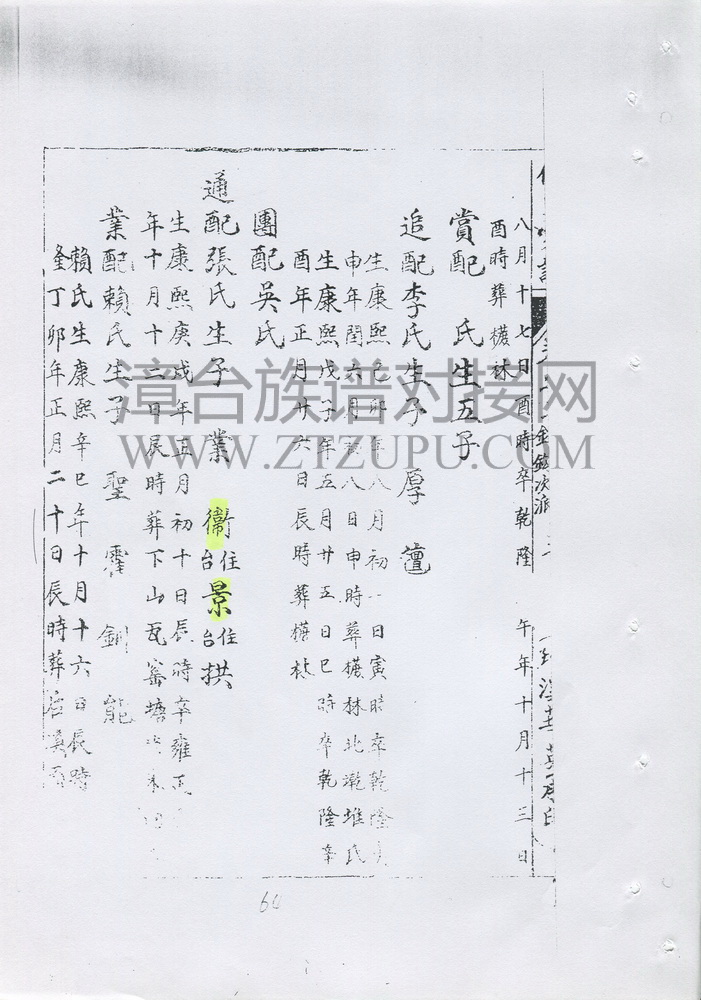 金鉉次派
八月十七日酉時卒乾隆 午年十月十三日
酉時葬橫林
賞配 氏生五子
追配李氏生子 厚
生康熙己卯年八月初一日寅時卒乾隆
申年閏六月 八日申時葬橫林北 堆氏
生康熙戊子年五月廿五日巳時卒乾隆辛
酉年正月廿六日辰時葬橫林
團配吳氏
通配張氏生子 業 衛住台 景住台 拱
生康熙庚戌年正月初十日辰時卒雍正
年十月十二日辰時葬下山瓦窑塘
業配賴氏生子 聖 霖 能
賴氏生康熙辛巳年十月十六日辰時
丁卯年正月二十日辰時葬
漳台族谱对接网
WWW.ZTZUPU.COM
60